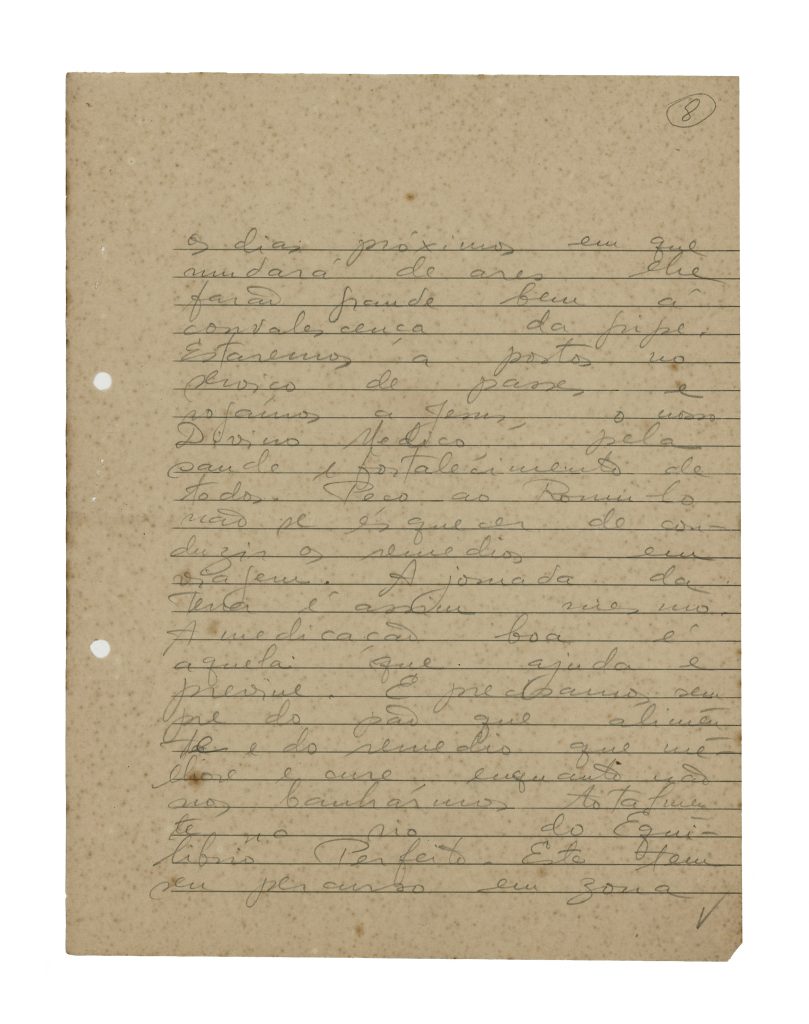 8
os dias próximos em que
mudará de ares lhe
farão grande bem à
convalescença da gripe.
Estaremos a postos no
serviço de passes e
rogámos a Jesus, o nosso
Divino Medico, pela
saude e fortalecimento de
todos. Peço ao Romulo
não se esquecer de con-
duzir os remedios em
viagem. A jornada da
Terra é assim mesmo.
A medicação boa é
aquela que ajuda e
previne. E precisamos sem
pre do pão que alimen
te e do remedio que me-
lhore e cure, enquanto não
nos banhármos totalmen
te no rio do Equi-
librio Perfeito. Este tem
seu percurso em zona